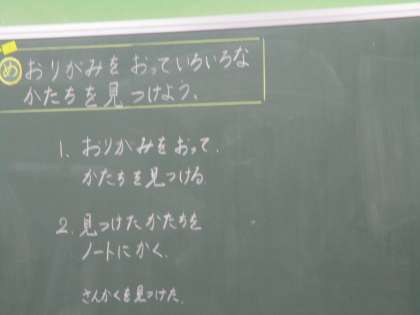 め おりがみを おっていろいろな
かたちを見つけよう。
1. おりがみをおって、
かたちを見つける
2. 見つけたかたちを
ノートにかく。
さんかくを見つけた。